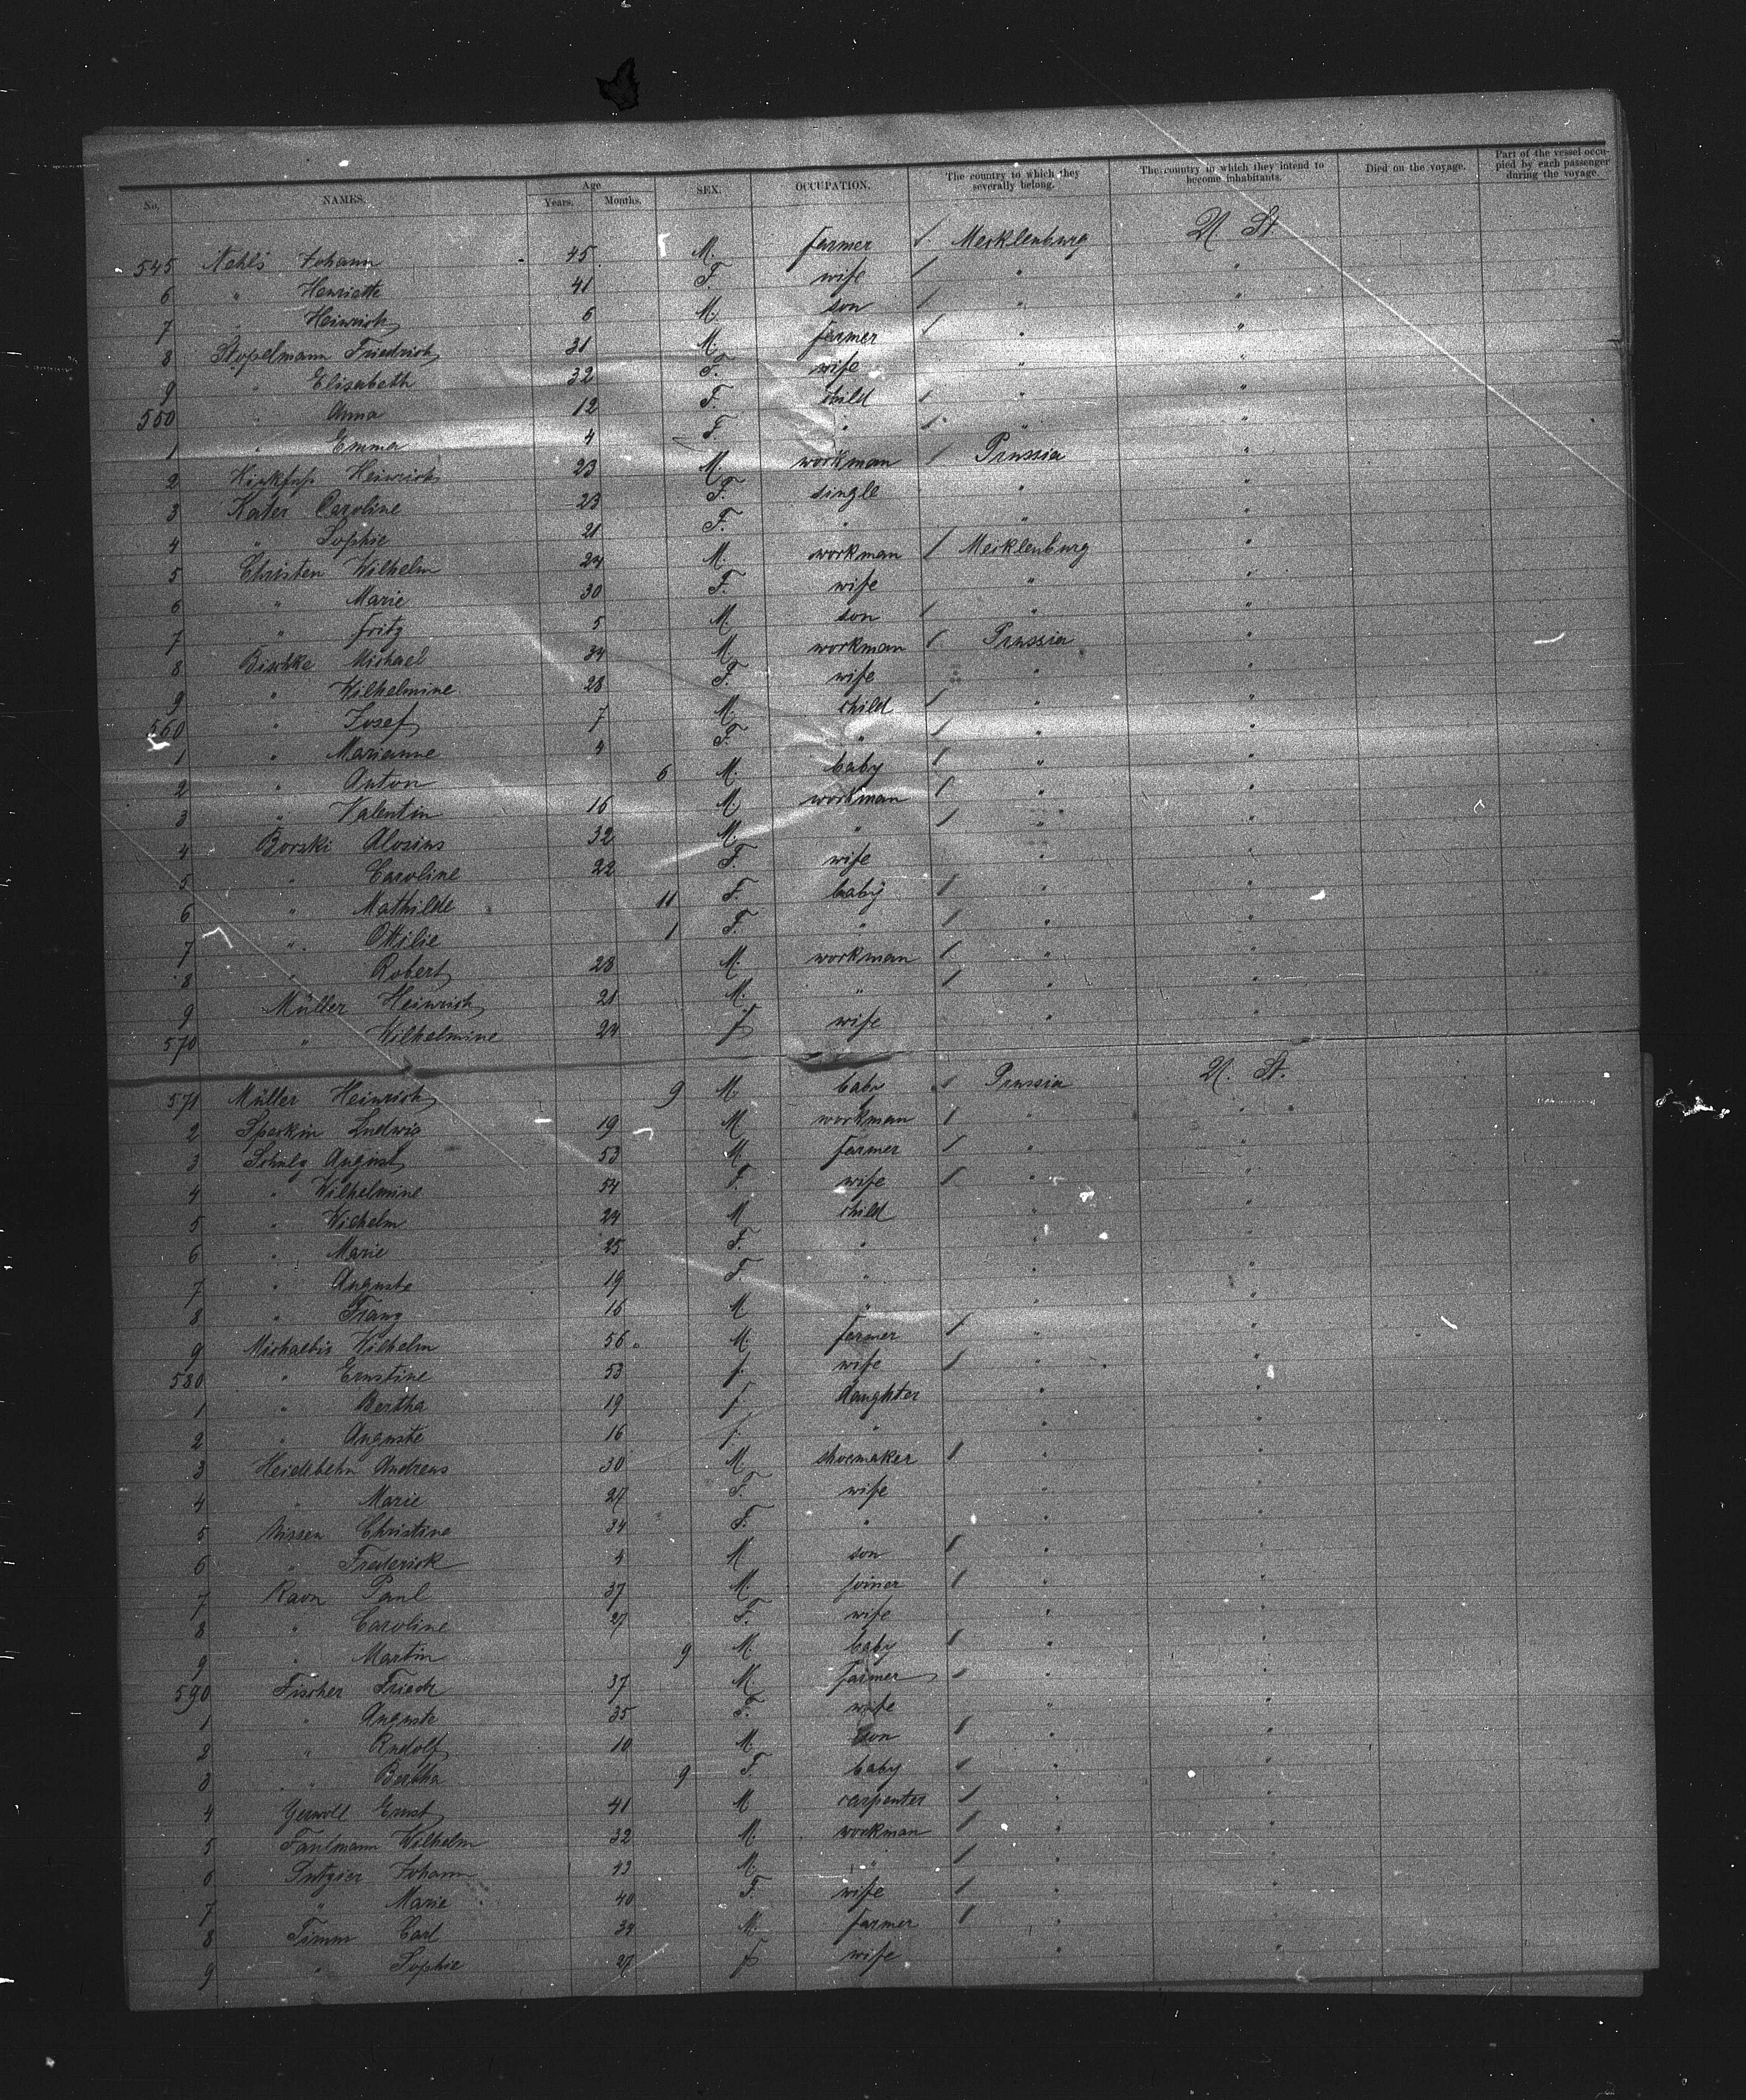 No. NAMES. Age Years. Months. SEX. OCCUPATION. The country to which they severally belong. The country in which they intend to become inhabitants. Died on the voyage. Part of the vessel occupied by each passenger during the voyage.
545 Nehls Johann 45 M. farmer / Mecklenburg U St
6 " Henriette 41 F. wife / " "
7 " Heinrich 6 M. son / " "
8 Stopelmann Friedrich 31 M. farmer / " "
9 " Elisabeth 32 F. wife " "
550 " Anna 12 F. child / " "
1 " Emma 4 F. " / " "
2 Heinrich 23 M. workman / Prussia "
3 Kater Caroline 23 F. single " "
4 " Sophie 21 F. " " "
5 Christen Wilhelm 24 M. workman / Mecklenburg "
6 " Marie 30 F. wife " "
7 " Fritz 5 M. son / " "
8 Bischke Michael 34 M workman / Prussia "
9 " Wilhelmine 28 F. wife " "
560 " Josef 7 M. child / " "
1 " Marianne 4 F. " / " "
2 " Anton 6 M. baby / " "
3 " Valentin 16 M. workman / " "
4 Borski Alosius 32 M. " / " "
5 " Caroline 22 F. wife " "
6 " Mathilde 11 F. baby / " "
7 " Ottilie 1 F. " / " "
8 " Robert 28 M. workman / " "
9 Müller Heinrich 21 M. " / " "
570 " Wilhelmine 24 f wife " "
571 Müller Heinrich 9 M. baby / Prussia U. St.
2 Sparkin Ludwig 19 M workman / " "
3 Schulz August 53 M. farmer / " "
4 " Wilhelmine 54 F. wife / " "
5 " Wilhelm 24 M child " "
6 " Marie 25 F. " " "
7 " Auguste 19 F. " " "
8 " Franz 16 M " " "
9 Michaelis Wilhelm 56 M. farmer / " "
580 " Ernstine 53 f. wife / " "
1 " Bertha 19 f. daughter " "
2 " Auguste 16 f. " " "
3 Heidebehn Andreas 30 M. shoemaker / " "
4 " Marie 27 F. wife " "
5 Nissen Christine 34 F. " " "
6 " Frederick 4 M son / " "
7 Raon Paul 37 M. joiner / " "
8 " Caroline 27 F. wife " "
9 " Martin 9 M. baby / " "
590 Fischer Friedr 37 M. farmer / " "
1 " Auguste 35 F. wife " "
2 " Rudolf 10 M. son / " "
3 " Bertha 9 F baby / " "
4 Gerwoll Ernst 41 M carpenter / " "
5 Faulmann Wilhelm 32 M. workman / " "
6 Putzier Johann 43 M. " / " "
7 " Marie 40 F. wife / " "
8 Timm Carl 34 M. farmer / " "
9 " Sophie 27 f wife " "